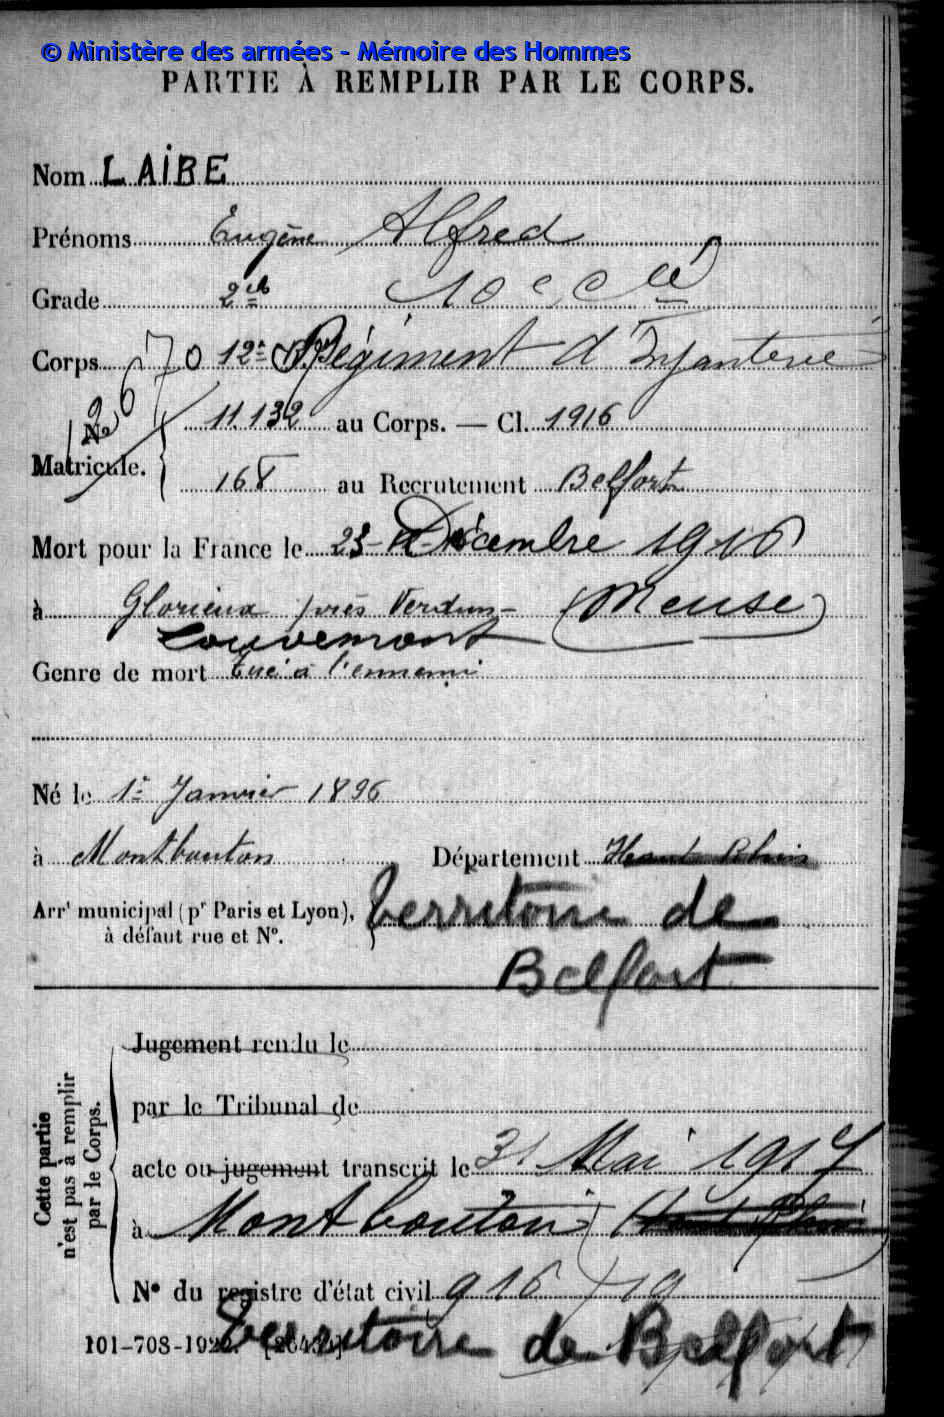 © Ministère des armées - Mémoire des Hommes
PARTIE À REMPLIR PAR LE CORPS.
Nom LAIBE
Prénoms Eugène Alfred
Grade 2e 10e Cie
Corps 12e Régiment d'Infanterie
No Matricule. 11.132 au Corps. — Cl. 1916
168 au Recrutement Belfort
Mort pour la France le 23 Décembre 1916
à Glorieux près Verdun - (Meuse)
Louvemont
Genre de mort Tué à l'ennemi
Né le 1er Janvier 1896
à Montbouton Département Haut Rhin
Arrt municipal (pr Paris et Lyon), Territoire de
à défaut rue et N°. Belfort
Cette partie n'est pas à remplir par le Corps.
Jugement rendu le
par le Tribunal de
acte ou jugement transcrit le 31 Mai 1917
à Montbouton (Haut Rhin)
N° du registre d'état civil 916/19
Territoire de Belfort
101-708-1922. [26434]